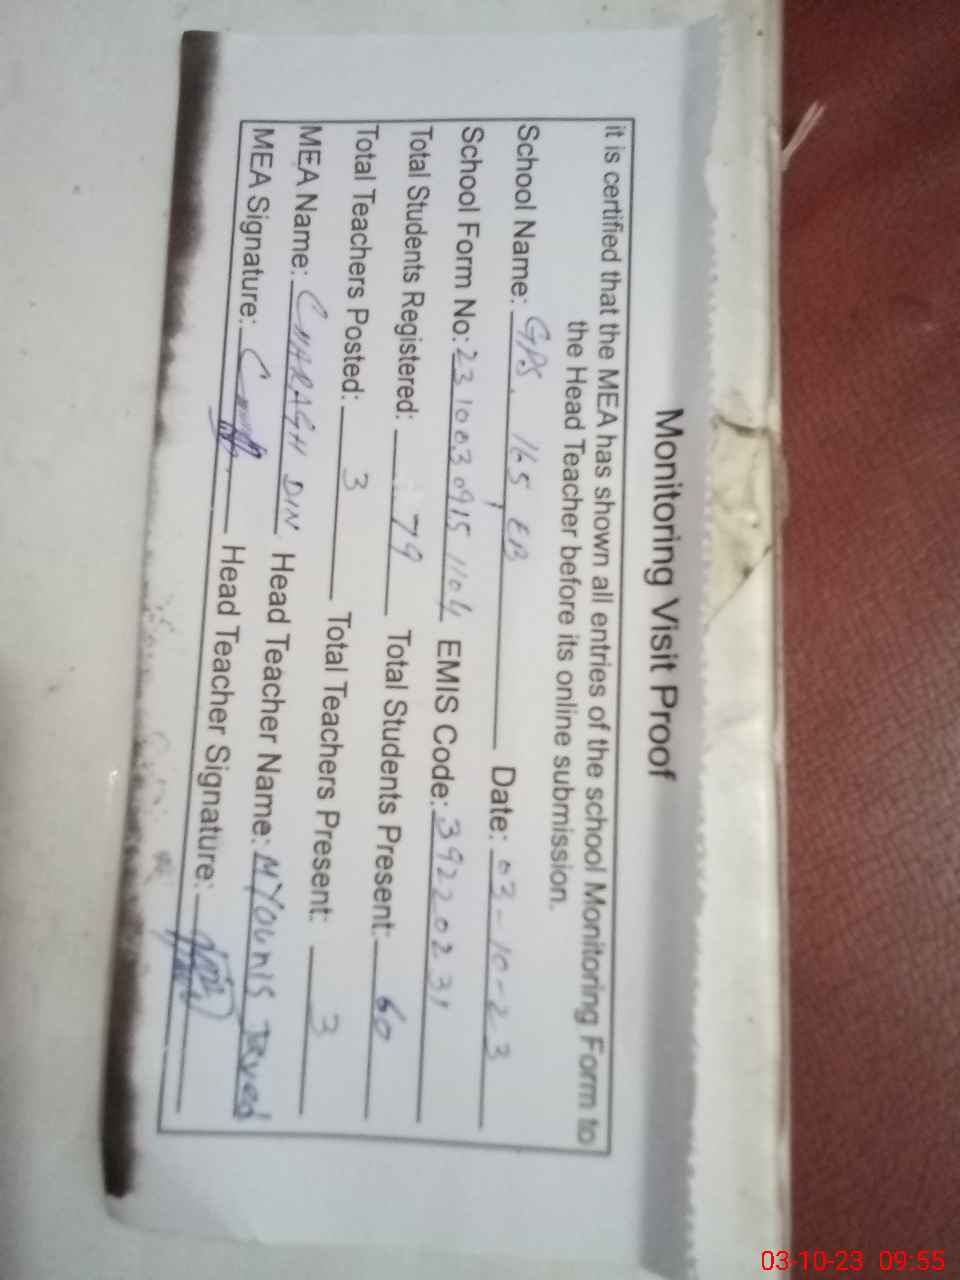 Monitoring Visit Proof
it is certified that the MEA has shown all entries of the school Monitoring Form to
the Head Teacher before its online submission.
School Name: GPS. 165 EB Date: 03-10-23
School Form No: 23100309151104 EMIS Code: 39220231
Total Students Registered: 79 Total Students Present: 60
Total Teachers Posted: 3 Total Teachers Present: 3
MEA Name: CHARAGH DIN Head Teacher Name: M YOUNIS Javed
MEA Signature: Head Teacher Signature:
03-10-23 09:55